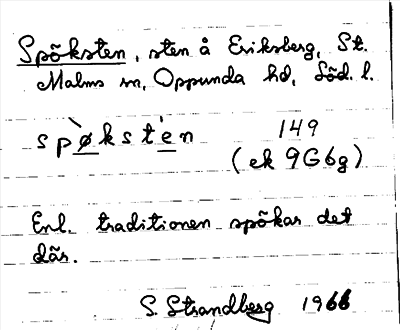 Spöksten, sten å Eriksberg, St.
Malms sn, Oppunda hd, Söd. l.
spø̀kste̍n 149
(ek 9G6g)
Enl. traditionen spökar det
där.
S. Strandberg 1966